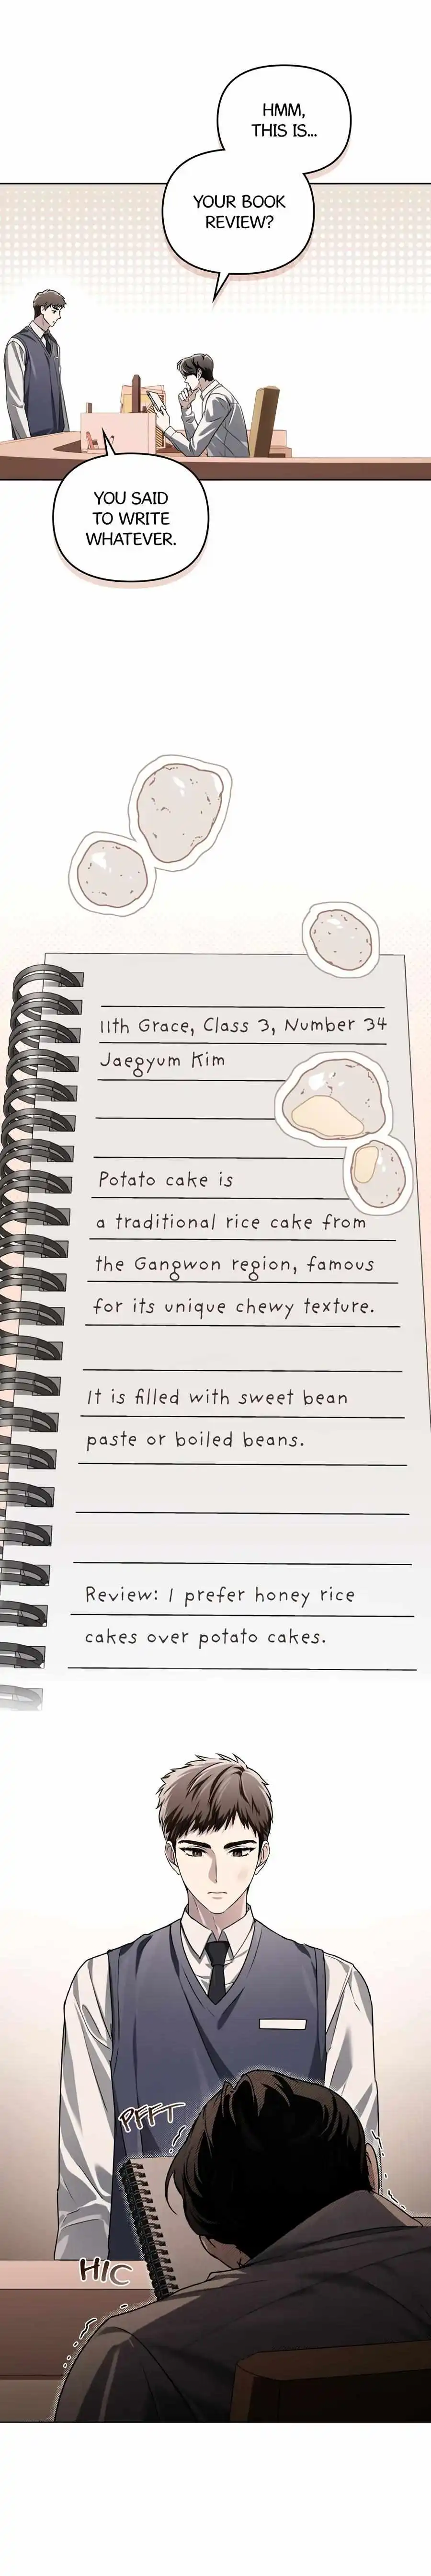 HMM,
THIS IS...
YOUR BOOK
REVIEW?
YOU SAID
TO WRITE
WHATEVER.
11th Grace, Class 3, Number 34
Jaegyum Kim
Potato cake is
a traditional rice cake from
the Gangwon region, famous
for its unique chewy texture.
It is filled with sweet bean
paste or boiled beans.
Review: I prefer honey rice
cakes over potato cakes.
PFFT
HIC